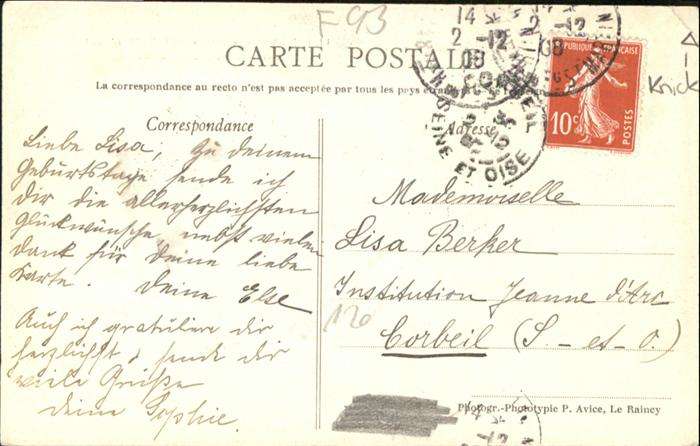 F 93
CARTE POSTALE
La correspondance au recto n'est pas acceptée par tous les pays
Knick
Correspondance
Liebe Lisa, Zu deinem
Geburtstage sende ich
dir die allerherzlichsten
Glückwünsche nebst vielen
Dank für deine liebe
Karte. Deine Else
Auch ich gratuliere dir
herzlichst, sende dir
viele Grüße
deine Sophie.
Adresse
Mademoiselle
Lisa Berker
Institution Jeanne d'Arc
Corbeil (S-et-O.)
120
Photogr.-Phototypie P. Avice, Le Raincy
RÉPUBLIQUE FRANÇAISE
10c
POSTES
14
2-12
08
CORBEIL
SEINE ET OISE